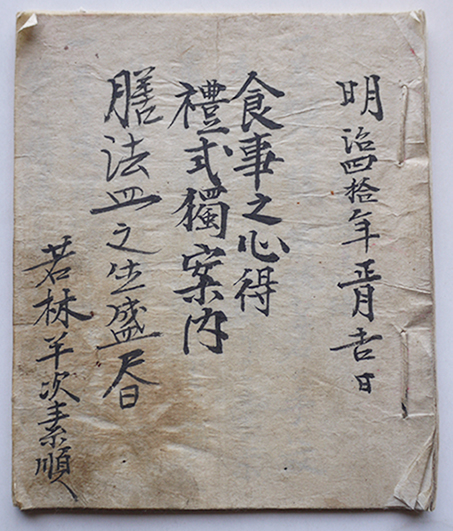 明治四拾年正月吉日
食事之心得
禮式獨案内
膳法皿之生盛
若林羊次素順